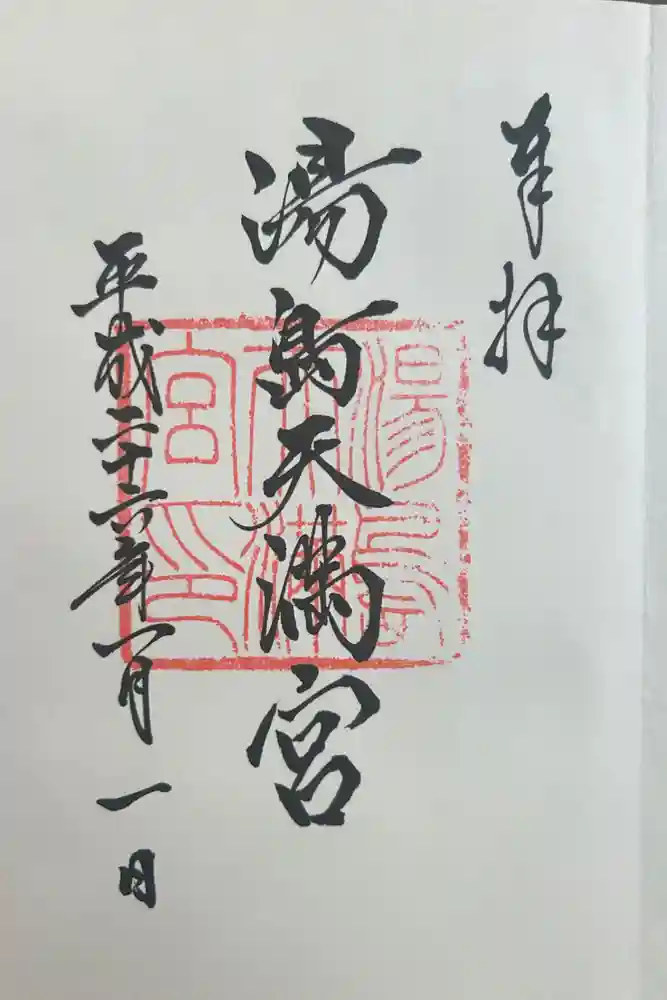 奉拝
湯島天満宮
湯島天満宮印
平成二十六年一月一日